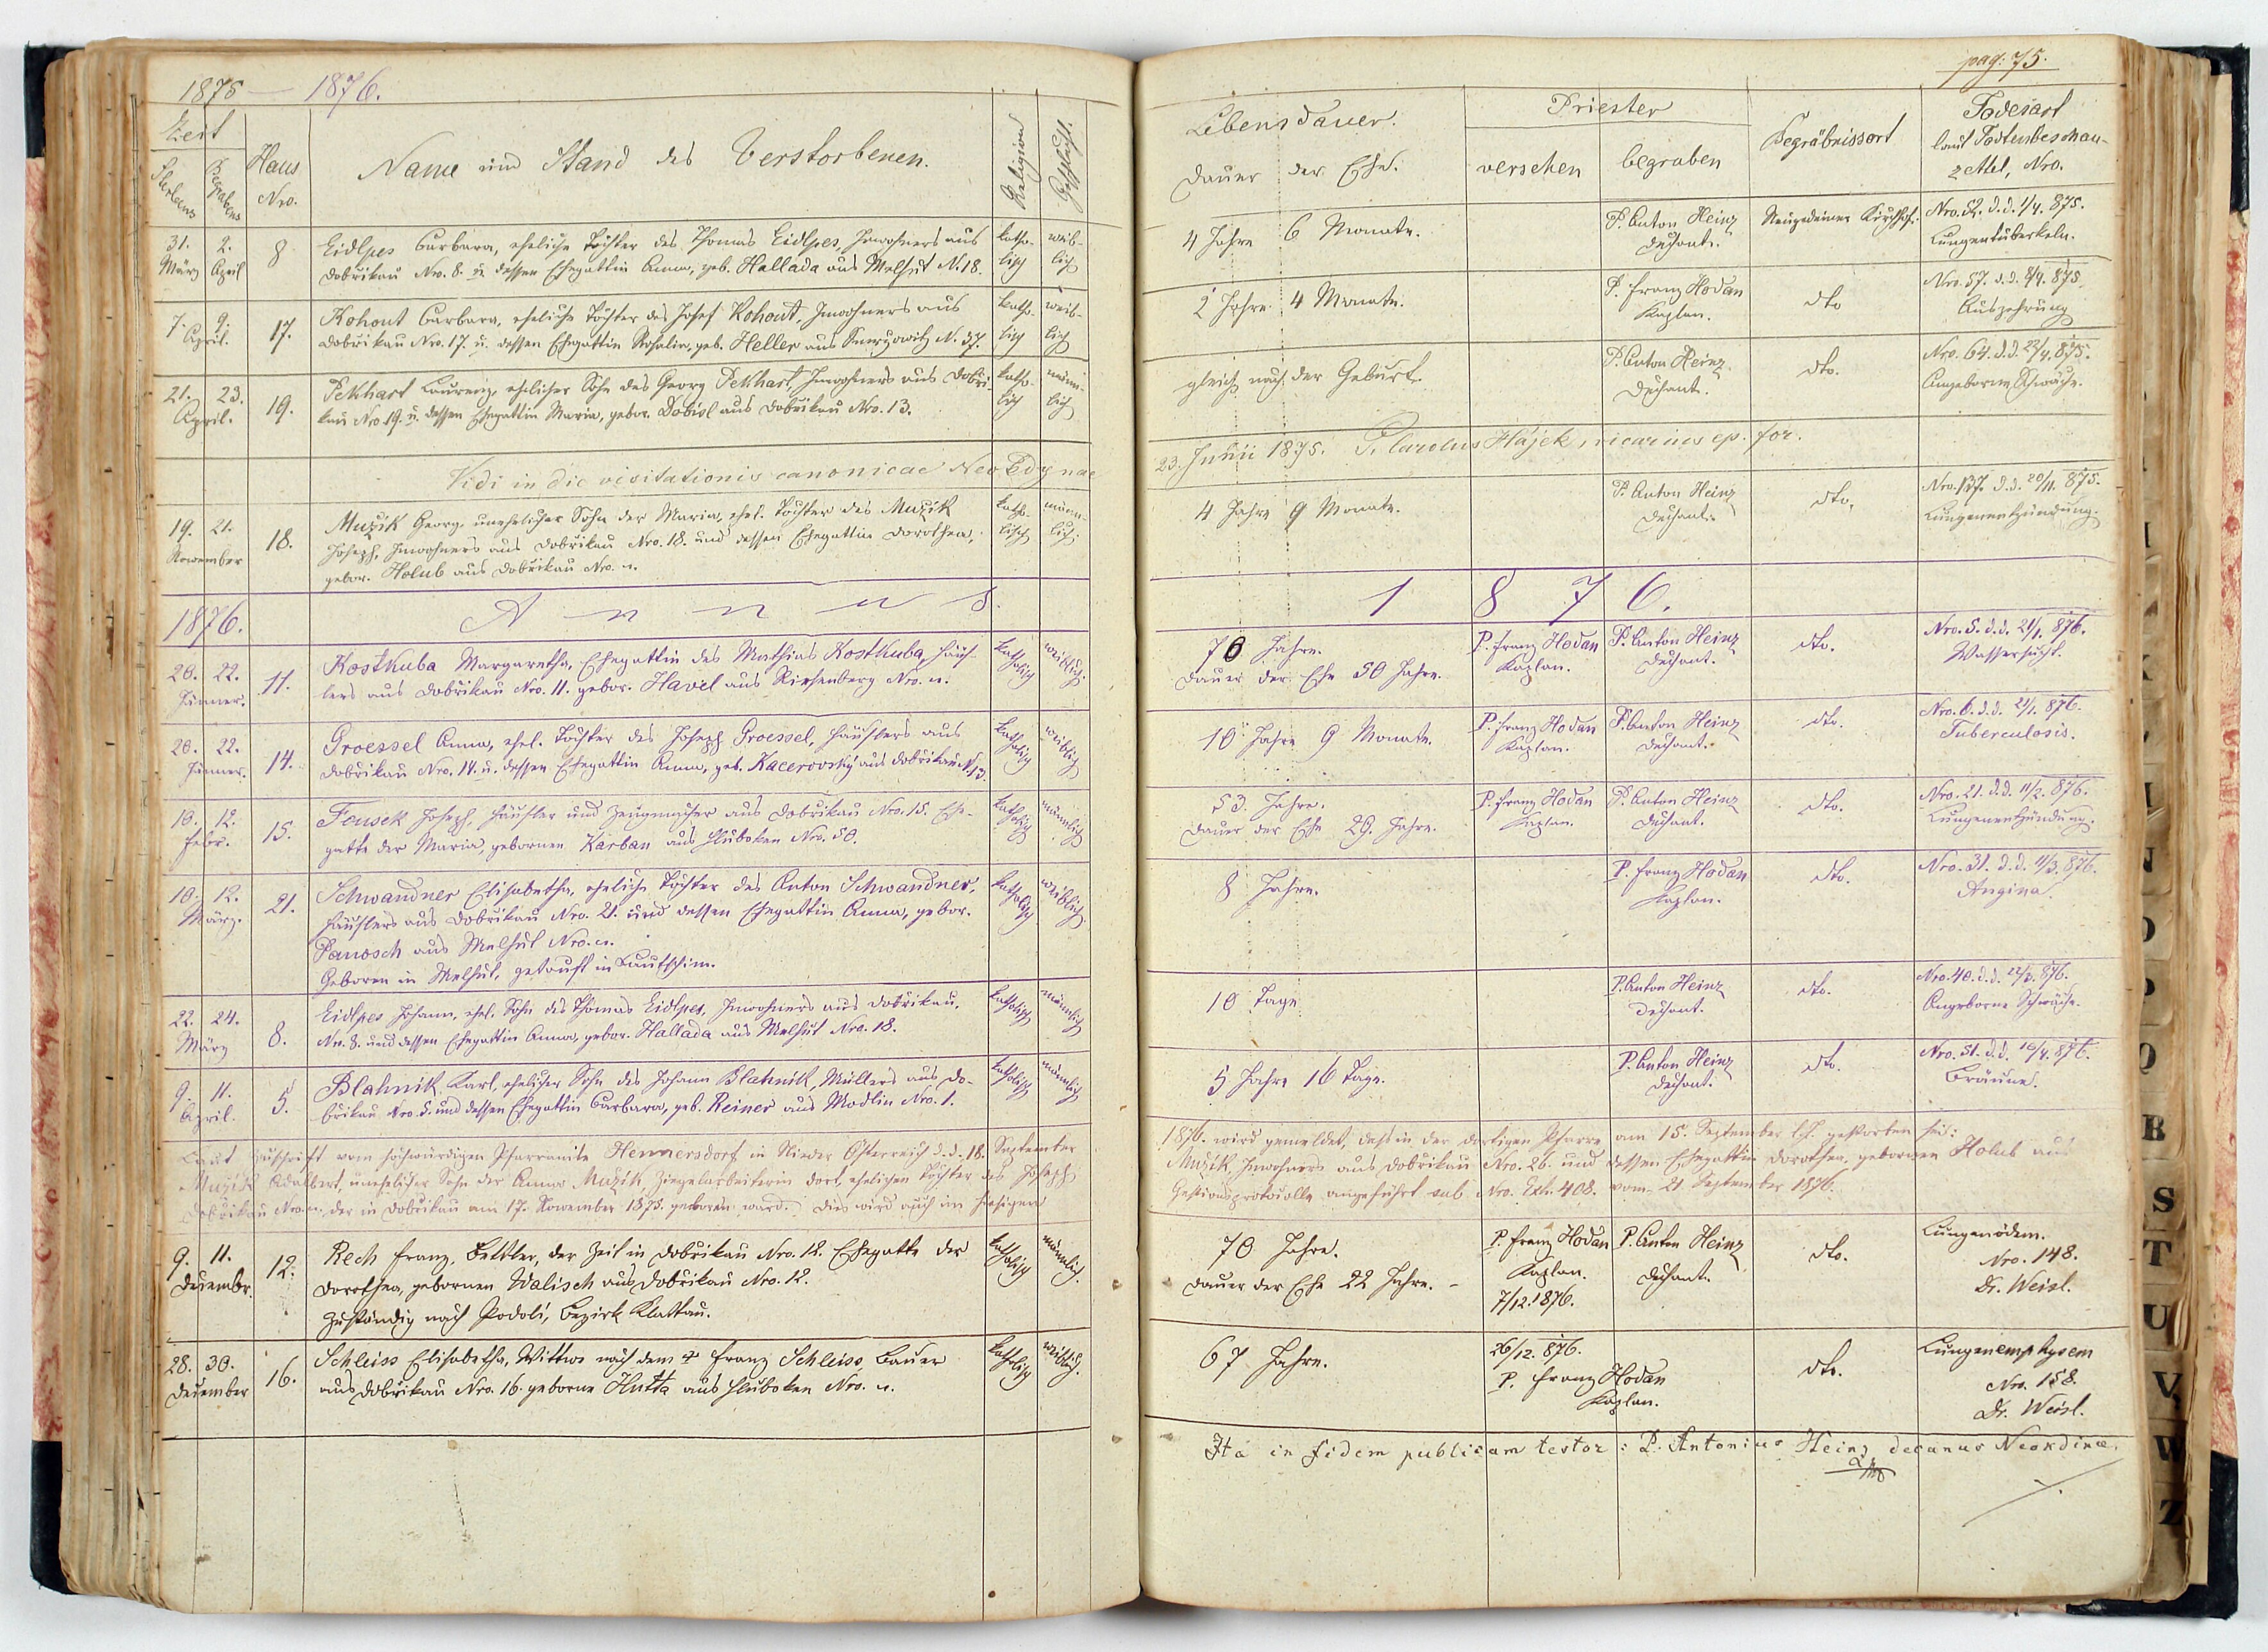 1875 — 1876.
Zeit
Sterbens
Begrabens
Haus
Nro.
Name und Stand des Verstorbenen.
Religion
Geschlecht.
31. März
2. April
8
Eidlpes Barbara, eheliche Tochter des Thomas Eidlpes, Inwohners aus
Dobrikau Nro. 8. u. dessen Ehegattin Anna, geb. Hallada aus Melhut N. 18.
katho-
lisch
weib-
lich
7. 9.
April.
17.
Kohout Barbara, eheliche Tochter des Josef Kohout, Inwohners aus
Dobrikau Nro. 17. u. dessen Ehegattin Rosalia, geb. Heller aus N. 37.
katho-
lisch
weib-
lich
21. 23.
April.
19.
Pekhart Laurenz, ehelicher Sohn des Georg Pekhart, Inwohners aus Dobři-
kau Nro. 19. u. dessen Ehegattin Maria, gebor. Dobisl aus Dobřikau Nro. 13.
katho-
lisch
männ-
lich
Vidi in die visitationis canonicae Neo Edynae
19. 21.
November
18.
Muzik Georg, unehelicher Sohn der Maria, ehel. Tochter des Muzik
Joseph, Inwohners aus Dobřikau Nro. 18. und dessen Ehegattin Dorothea,
gebor. Holub aus Dobřikau Nro. n.
katho-
lisch
männ-
lich.
1876.
Annus.
20. 22.
Jänner.
11.
Kostkuba Margaretha, Ehegattin des Mathias Kostkuba, Häus-
lers aus Dobřikau Nro. 11. gebor. Havel aus Riesenberg Nro. n.
katholisch
weiblich.
20. 22.
Jänner.
14.
Groessel Anna, ehel. Tochter des Joseph Groessel, Häuslers aus
Dobrikau Nro. 14. u. dessen Ehegattin Anna, geb. Kacerovský aus Dobrikau N. 13.
katholisch
weiblich
10. 12.
Febr.
15.
Fousek Joseph, Häusler und Zeugmacher aus Dobrikau Nro. 15. Ehe-
gatte der Maria, gebornen Karban aus Hluboken Nro. 50.
katholisch
männlich
10. 12.
März.
21.
Schwandner Elisabetha, eheliche Tochter des Anton Schwandner,
Häuslers aus Dobřikau Nro. 21. und dessen Ehegattin Anna, gebor.
Panosch aus Melhut Nro. n.
Geboren in Melhut, getauft in Lautschim.
katholisch
weiblich.
22. 24.
März
8.
Eidlpes Johann, ehel. Sohn des Thomas Eidlpes, Inwohners aus Dobřikau,
Nro. 8. und dessen Ehegattin Anna, gebor. Hallada aus Melhut Nro. 18.
katholisch
männlich
9. 11.
April.
5.
Blahnik Karl, ehelicher Sohn des Johann Blahnik, Müllers aus Do-
brikau Nro. 5. und dessen Ehegattin Barbara, geb. Reiner aus Modlin Nro. 1.
katholisch
männlich
Laut Zuschrift vom hochwürdigen Pfarramte Hennersdorf in Nieder Österreich d. d. 18. September
Muzik Adalbert, unehelicher Sohn der Anna Muzik, Ziegelarbeiterin dort, ehelichen Tochter des Joseph
Dobřikau Nro. n. der in Dobřikau am 17. November 1873. geboren ward. Dies wird auch im hiesigen
9. 11.
Dezembr.
12.
Rech Franz, Bettler, der Zeit in Dobřikau Nro. 12. Ehegatte der
Dorothea, gebornen Walisch aus Dobřikau Nro. 12.
Zuständig nach Podolí, Bezirk Klattau.
katholisch
männlich.
28. 30.
Dezember
16.
Schleiss Elisabetha, Wittwe nach dem † Franz Schleiss, Bauer
aus Dobřikau Nro. 16. geborne Hutta aus Hluboken Nro. n.
katholisch
weiblich.
pag: 75.
Lebensdauer.
Dauer der Ehe.
Priester
versehen
begraben
Begräbnissort
Todesart
laut Todtenbeschau-
zettel, Nro.
4 Jahre 6 Monate.
P. Anton Heinz
Dechant.
Neugedeiner Kirchhof.
Nro. 52. d. d. 1/4. 875.
Lungentuberkeln.
2 Jahre 4 Monate.
P. Franz Hodan
Kaplan.
dto
Nro. 57. d. d. 8/4. 875
Auszehrung
gleich nach der Geburt.
P. Anton Heinz
Dechant.
dto.
Nro. 64. d. d. 23/4. 875.
Angeborne Schwäche.
23. Junii 1875. P. Carolus Hájek, vicarius ep. for.
4 Jahre 9 Monate.
P. Anton Heinz
Dechant.
dto.
Nro. 137. d. d. 20/11. 875.
Lungenentzündung.
1876.
70 Jahre.
Dauer der Ehe 50 Jahre.
P. Franz Hodan
Kaplan.
P. Anton Heinz
Dechant.
dto.
Nro. 5. d. d. 21/1. 876.
Wassersucht.
10 Jahre 9 Monate.
P. Franz Hodan
Kaplan.
P. Anton Heinz
Dechant.
dto.
Nro. 6. d. d. 21/1. 876.
Tuberculosis.
53. Jahre.
Dauer der Ehe 29. Jahre.
P. Franz Hodan
Kaplan.
P. Anton Heinz
Dechant.
dto.
Nro. 21. d. d. 11/2. 876.
Lungenentzündung.
8 Jahre.
P. Franz Hodan
Kaplan.
dto.
Nro. 31. d. d. 11/3. 876.
Angina.
10 Tage
P. Anton Heinz
Dechant.
dto.
Nro. 40. d. d. 22/3. 876.
Angeborne Schwäche.
5 Jahre 16 Tage.
P. Anton Heinz
Dechant.
dto.
Nro. 51. d. d. 10/4. 876.
Bräune.
1876. wird gemeldet, dass in der dortigen Pfarre am 15. September l. J. gestorben sei:
Muzik, Inwohners aus Dobřikau Nro. 26. und dessen Ehegattin Dorothea, gebornen Holub aus
Gestionsprotocolle angeführt sub Nro. Exh. 408. vom 21. September 1876.
70 Jahre.
Dauer der Ehe 22 Jahre. -
P. Franz Hodan
Kaplan.
7/12. 1876.
P. Anton Heinz
Dechant.
dto.
Lungenödem.
Nro. 148.
Dr. Weisl.
67 Jahre.
26/12. 876.
P. Franz Hodan
Kaplan.
dto.
Lungenemphysem
Nro. 158.
Dr. Weisl.
Ita in fidem publicam testor: P. Antonius Heinz decanus Neogdinae.
L
N
O
P
Q
R
S
T
U
V
W
Z